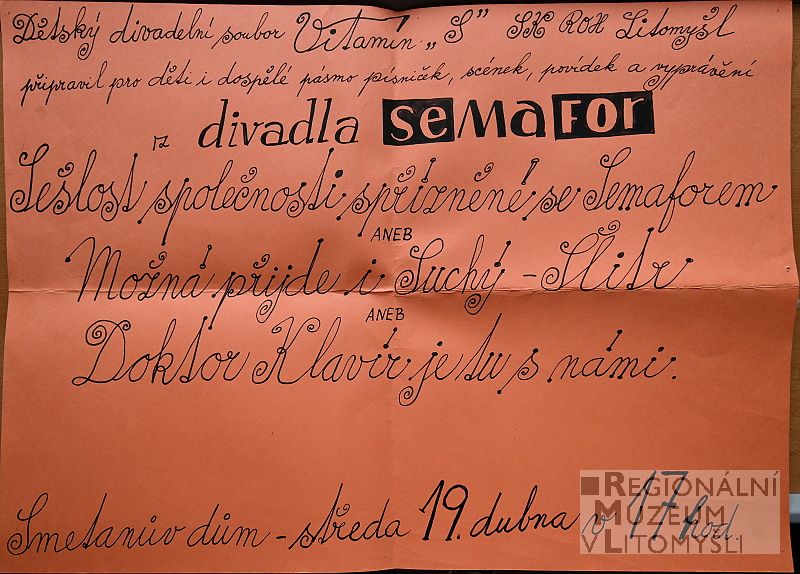 Dětský divadelní soubor Vitamín „S" SK ROH Litomyšl
připravil pro děti i dospělé pásmo písniček, scének, povídek a vyprávění
z divadla SeMaFOR
Sešlost společnosti spřízněné se Semaforem
ANEB
Možná přijde i Suchý - Šlitr
ANEB
Doktor Klavír je tu s námi.
Smetanův dům - středa 19. dubna v 17 hod.
REGIONÁLNÍ
MUZEUM
V LITOMYŠLI